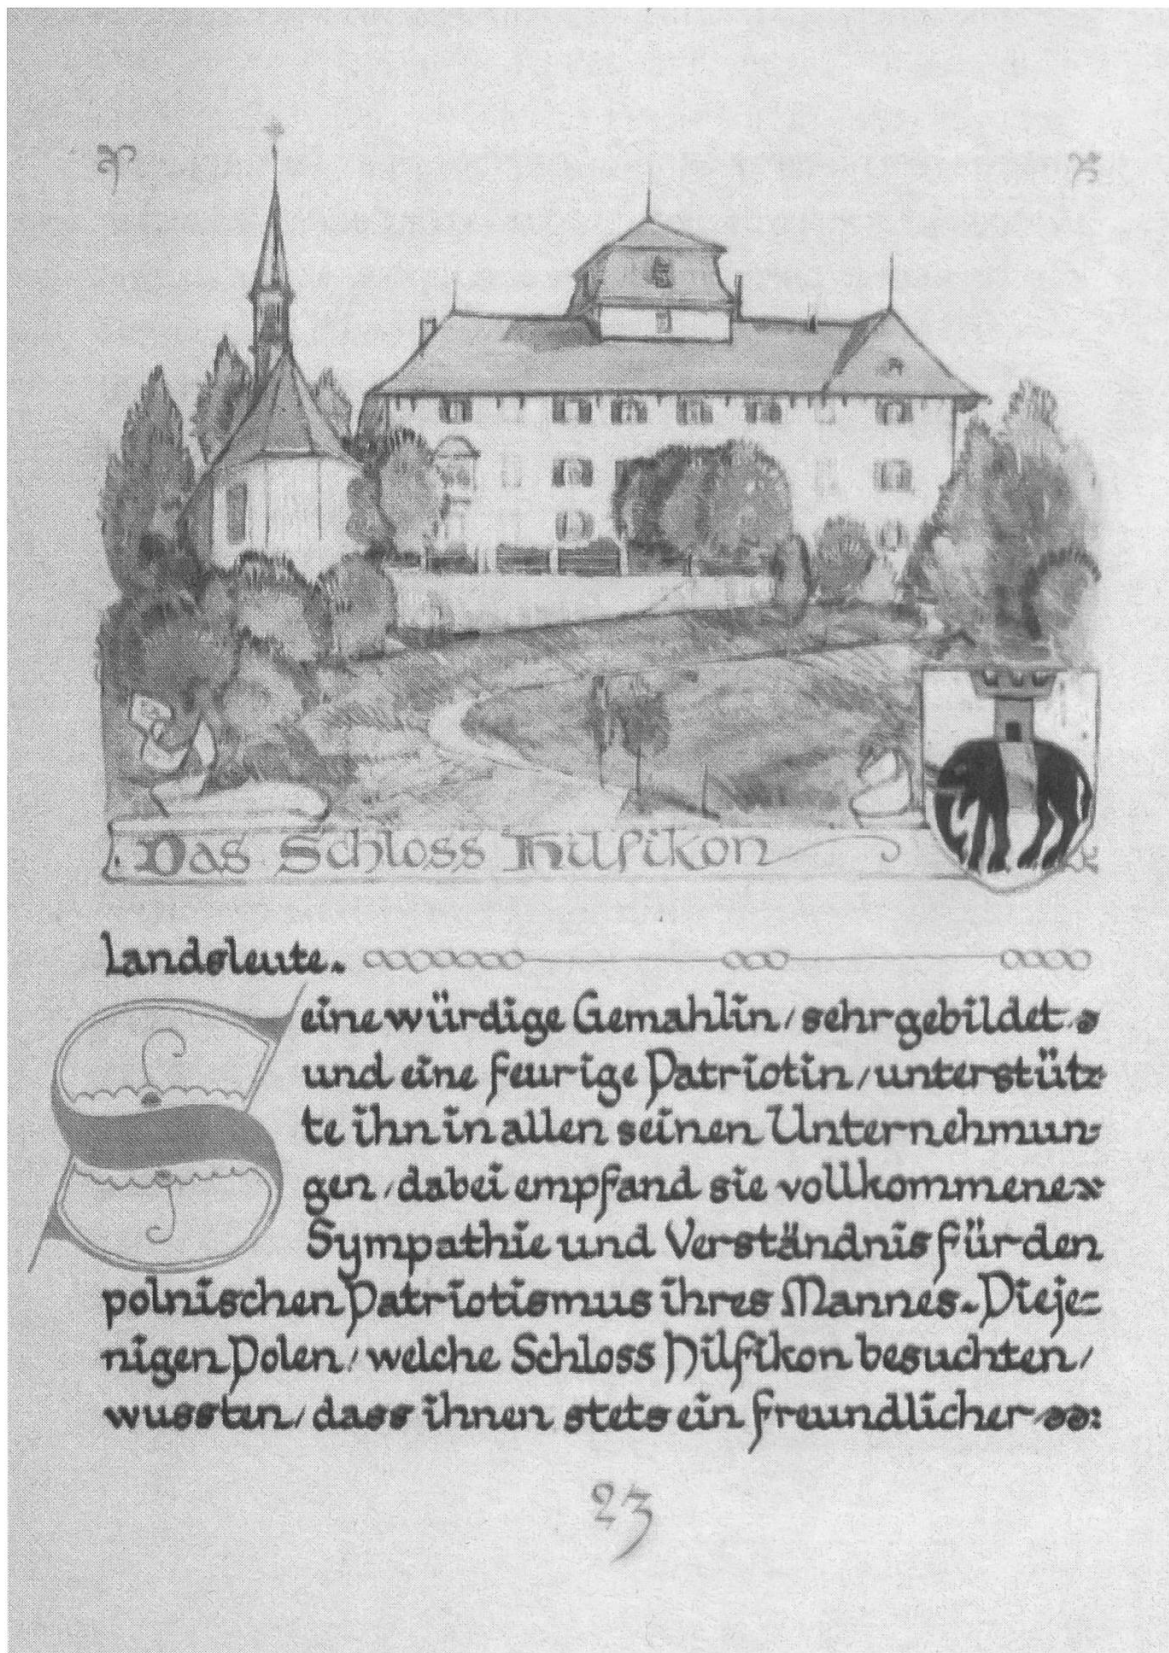 Das Schloss Hilfikon
Landsleute.
Seine würdige Gemahlin, sehr gebildet
und eine feurige Patriotin, unterstütz-
te ihn in allen seinen Unternehmun-
gen, dabei empfand sie vollkommene
Sympathie und Verständnis für den
polnischen Patriotismus ihres Mannes. Dieje-
nigen Polen, welche Schloss Hilfikon besuchten,
wussten, dass ihnen stets ein freundlicher
23